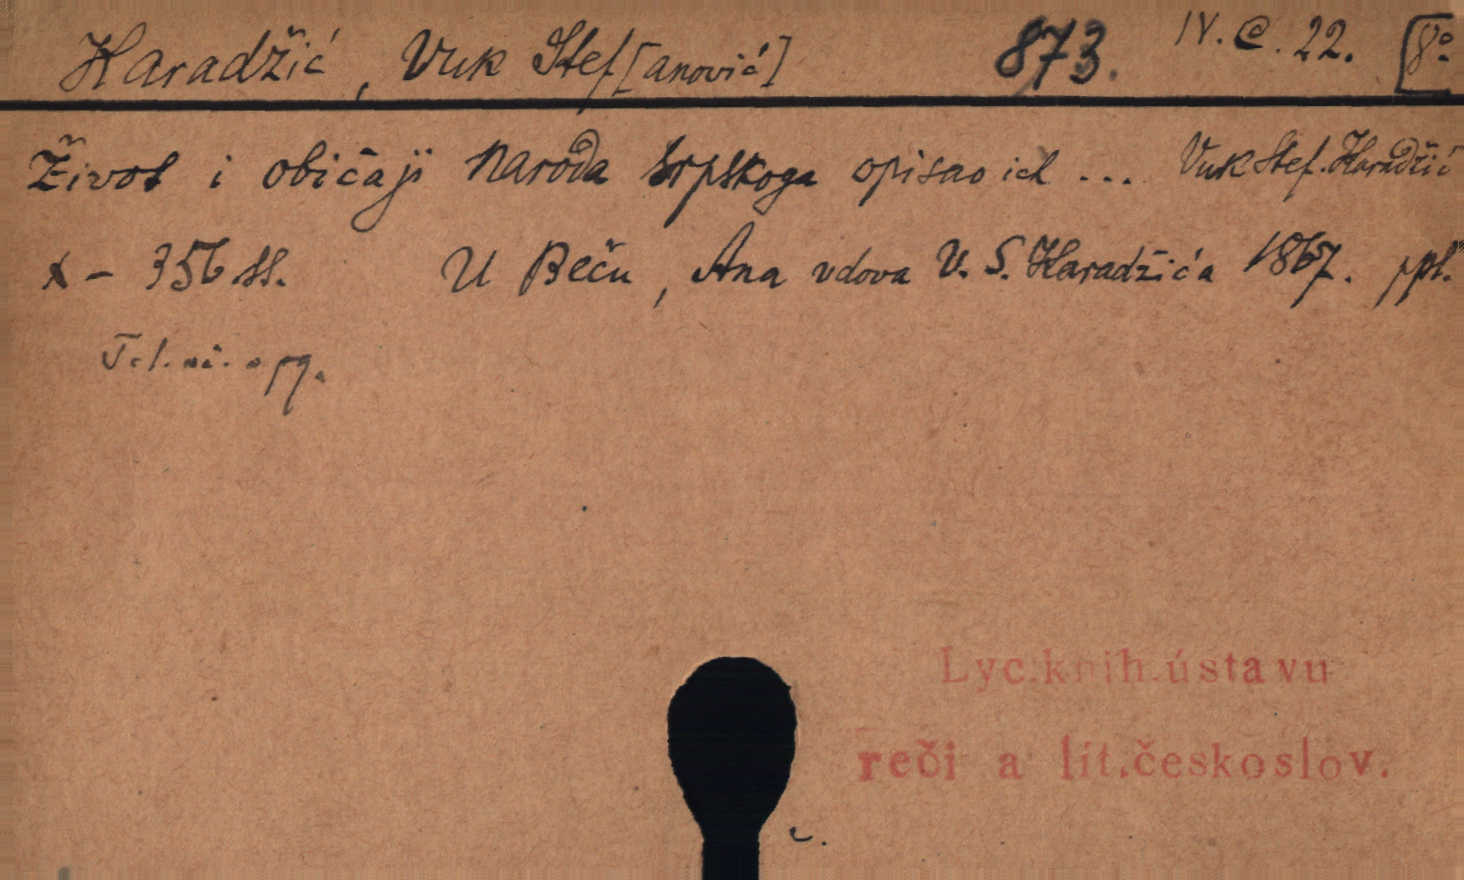 Karadžić, Vuk Stef[anović] 873. IV. C. 22. [8°
Život i običaji naroda srpskoga opisao ich ... Vuk Stef. Karadžić
X – 356 ss. U Beču, Ana vdova V. S. Karadžića 1867. ppl.
Lyc. knih. ústavu
reči a lit. českoslov.